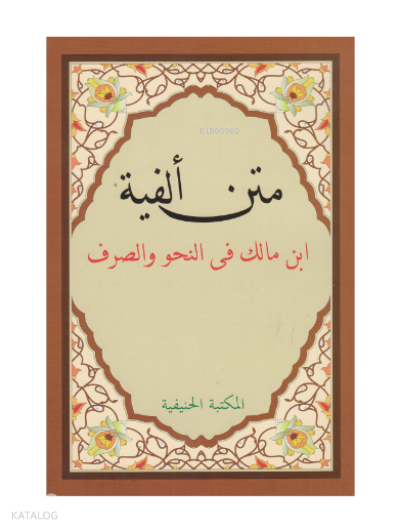 متن ألفية
ابن مالك فى النحو والصرف
المكتبة الحنيفية
KATALOG